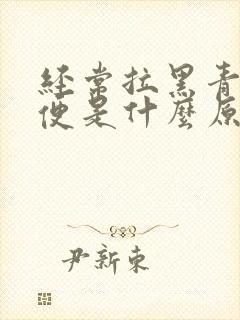 經常拉黑青
便是什麼原
尹新東